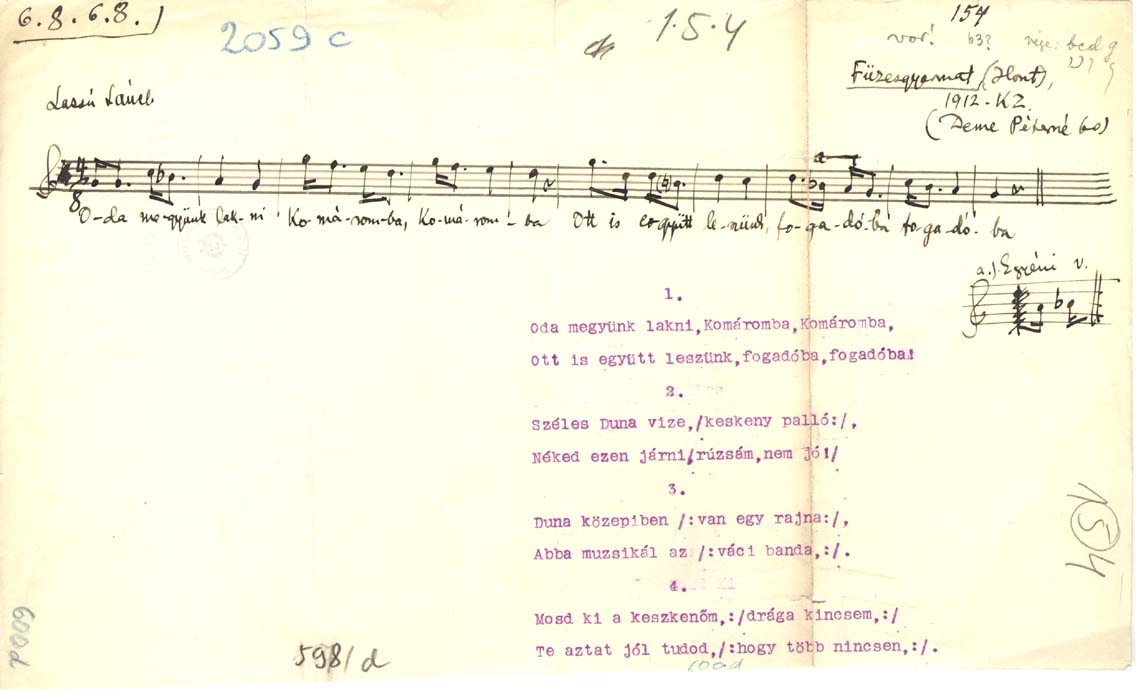 6.8.6.8.
2059 c
1.5.4
154
var!
b3?
vége: bcd g
Füzesgyarmat, (Hont),
1912-KZ.
(Deme Péterné 60)
Lassú tánc
a
8
O-da me-gyünk lak-ni Ko-má-rom-ba, Ko-má-rom-ba Ott is együtt le-szünk, fo-ga-dó-ba fo-ga-dó-ba
a.) Egyéni v.
1.
Oda megyünk lakni,Komáromba,Komáromba,
Ott is együtt leszünk,fogadóba,fogadóba!
2.
Széles Duna vize,/keskeny palló:/,
Néked ezen járni/rúzsám,nem jó!/
3.
Duna közepiben /:van egy rajna:/,
Abba muzsikál az /:váci banda,:/.
4.
Mosd ki a keszkenőm,:/drága kincsem,:/
Te aztat jól tudod,/:hogy több nincsen,:/.
154
600d
598/d
600d